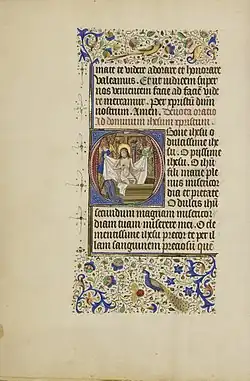 mate et videre adorare et honorare
valeamus. Et ut iudicem super
nos venientem facie ad facē vide
re mereamur. Per xpristū dūm
nostrum. Amen. Devota oratio
ad dominum ihesum xpristum.
Bone ihesu o
dulcissime ihe
su. O pijssime
ihesu. O ihe
su marie ple
nus misericor
dia et pietate
O dulcis ihesu
secundum magnam misericor
diam tuam miserere mei. O cle
mentissime ihesu precor te per il
lum sanguinem preciosū que